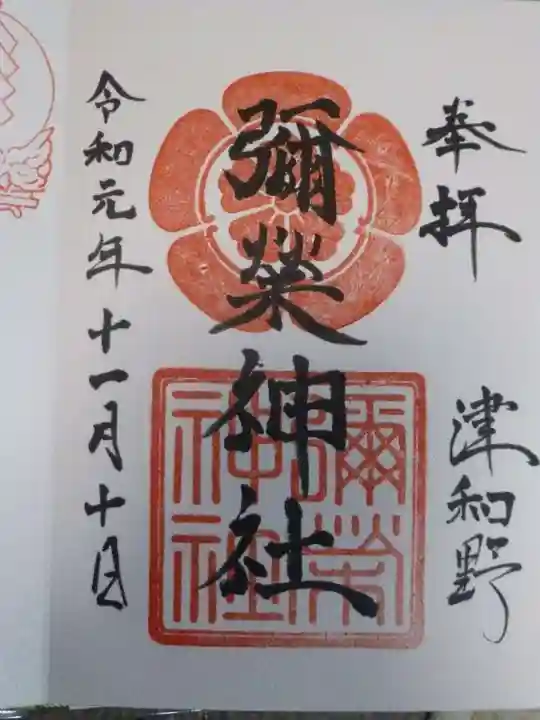 奉拝
津和野
彌榮神社
彌榮
神社
令和元年十一月十日